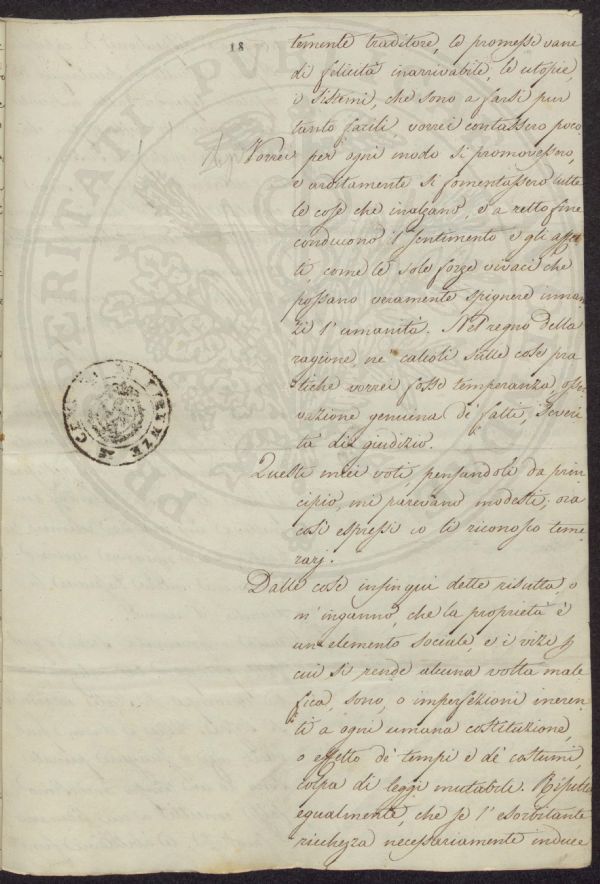 18
temente traditore, le promesse vane
di felicità inarrivabile, le utopie,
i sistemi, che sono a farsi pur
tanto facili, vorrei contassero poco.
Vorrei per ogni modo si promovessero,
e arditamente si fomentassero tutte
le cose che inalzano, e a retto fine
conducono il sentimento e gli affet-
ti come le sole forze vivaci che
possano veramente spignere innan
zi l'umanità. Nel regno della
ragione, ne' calcoli sulle cose pra
tiche vorrei fosse temperanza, osser
vazione genuina de' fatti, severi
tà di giudizio.
Questi miei voti, pensandoli da prin
cipio, mi parevano modesti; ora
così espressi io li riconosco teme
rarj.
Dalle cose infinqui dette risulta, o
m'inganno, che la proprietà è
un elemento sociale, e i vizi p
cui si rende alcuna volta male
fica, sono, o imperfezioni ineren
ti a ogni umana costituzione,
o effetto de' tempi e de' costumi,
colpa di leggi mutabili. Risulta
egualmente, che se l'esorbitante
ricchezza necessariamente induce
PROSPERITATI PVB
FIRENZE